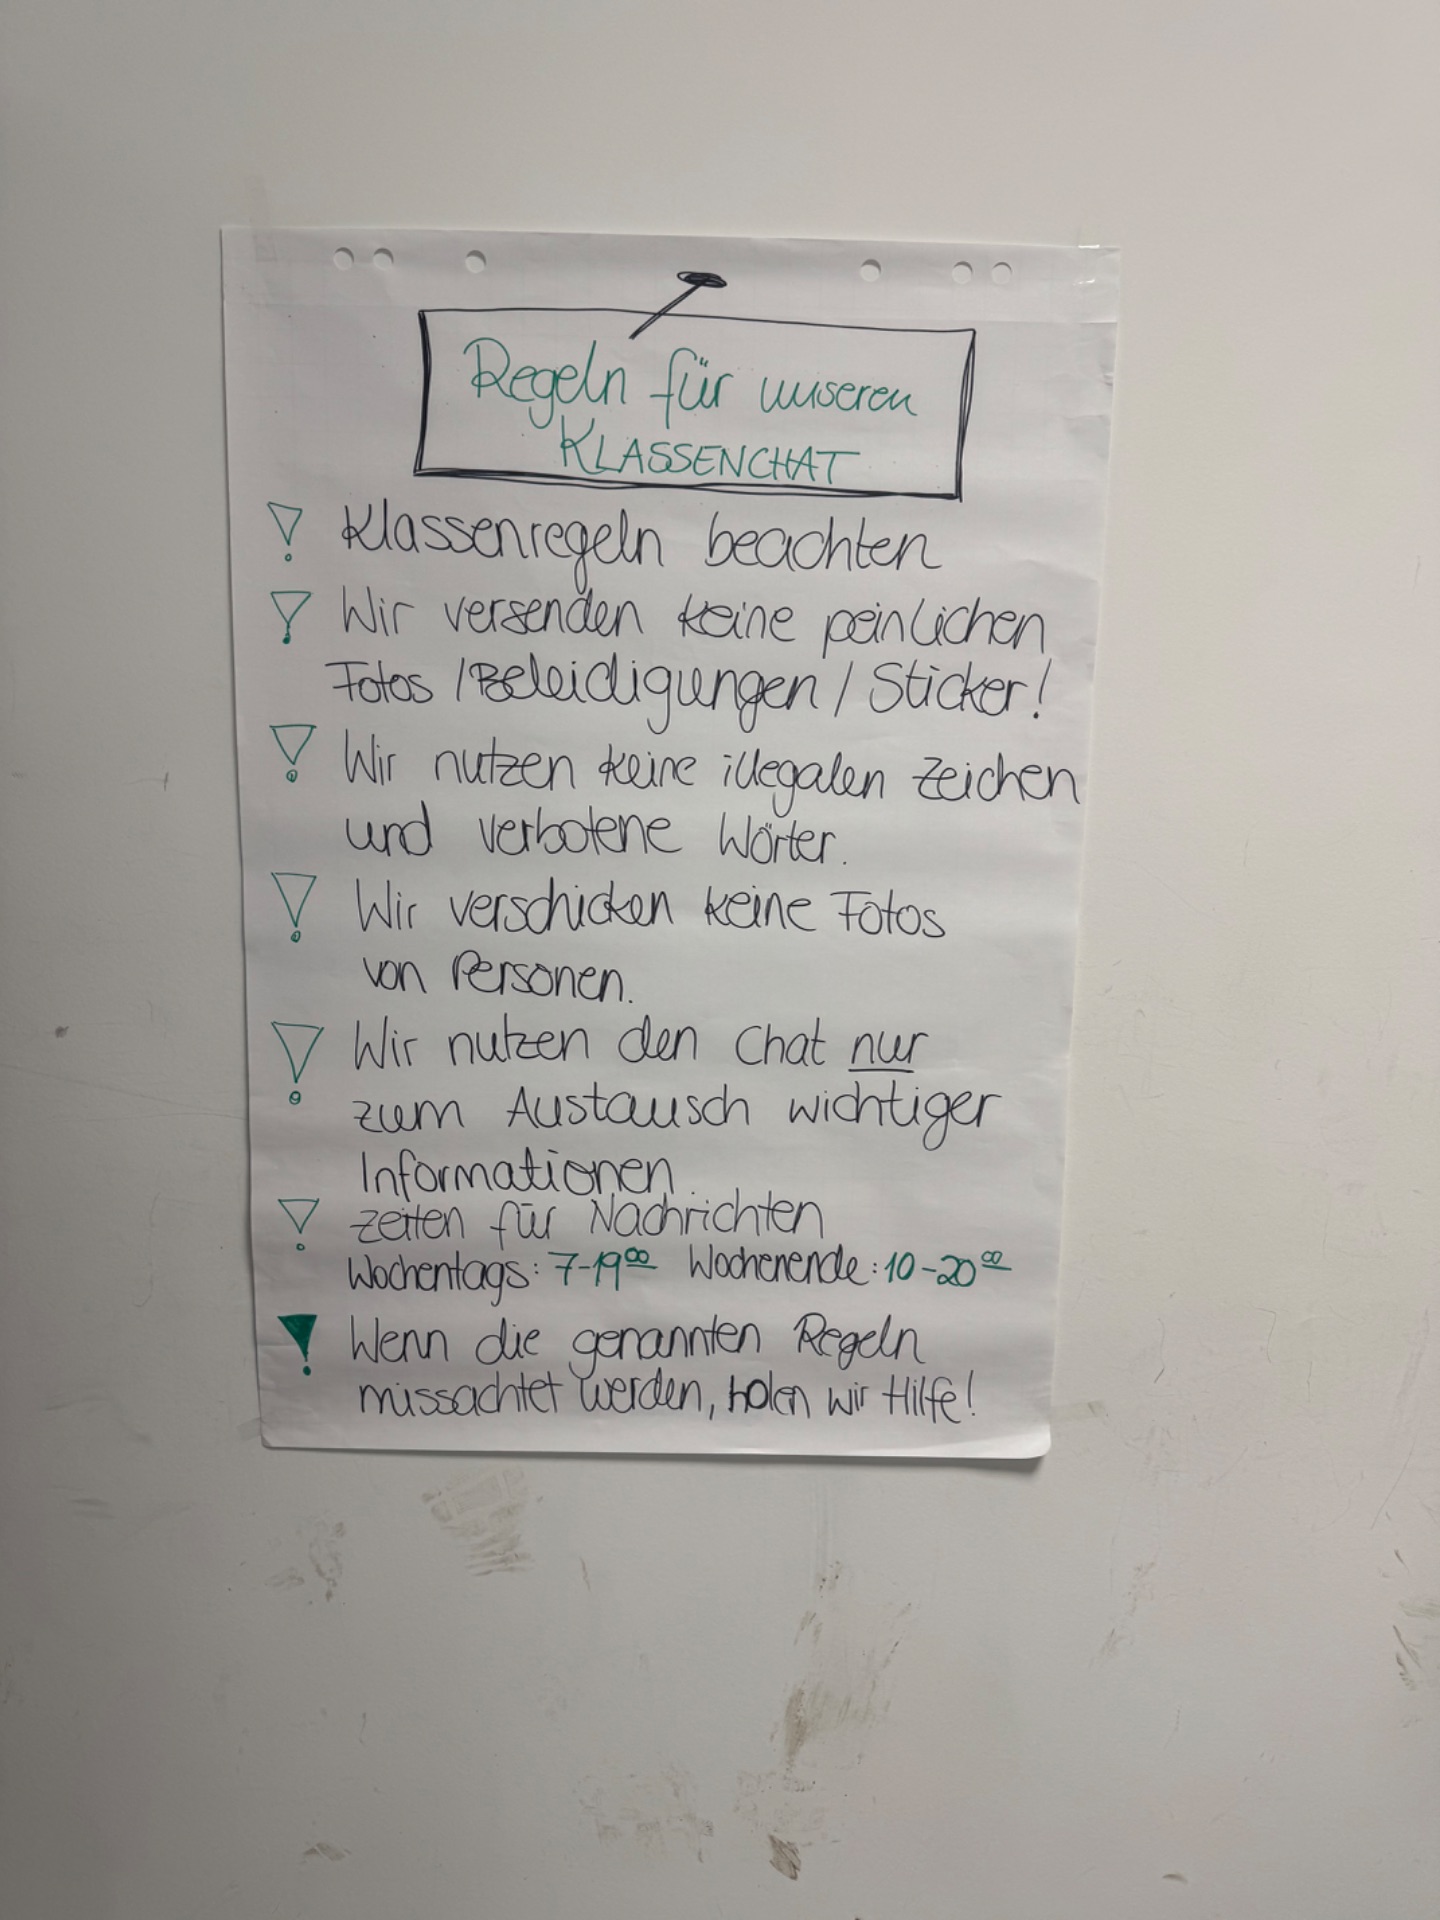 Regeln für unseren
KLASSENCHAT
Klassenregeln beachten
Wir versenden keine peinlichen
Fotos / Beleidigungen / Sticker!
Wir nutzen keine illegalen Zeichen
und verbotene Wörter.
Wir verschicken keine Fotos
von Personen.
Wir nutzen den Chat nur
zum Austausch wichtiger
Informationen.
Zeiten für Nachrichten
Wochentags: 7-19⁰⁰ Wochenende: 10-20⁰⁰
Wenn die genannten Regeln
missachtet werden, holen wir Hilfe!